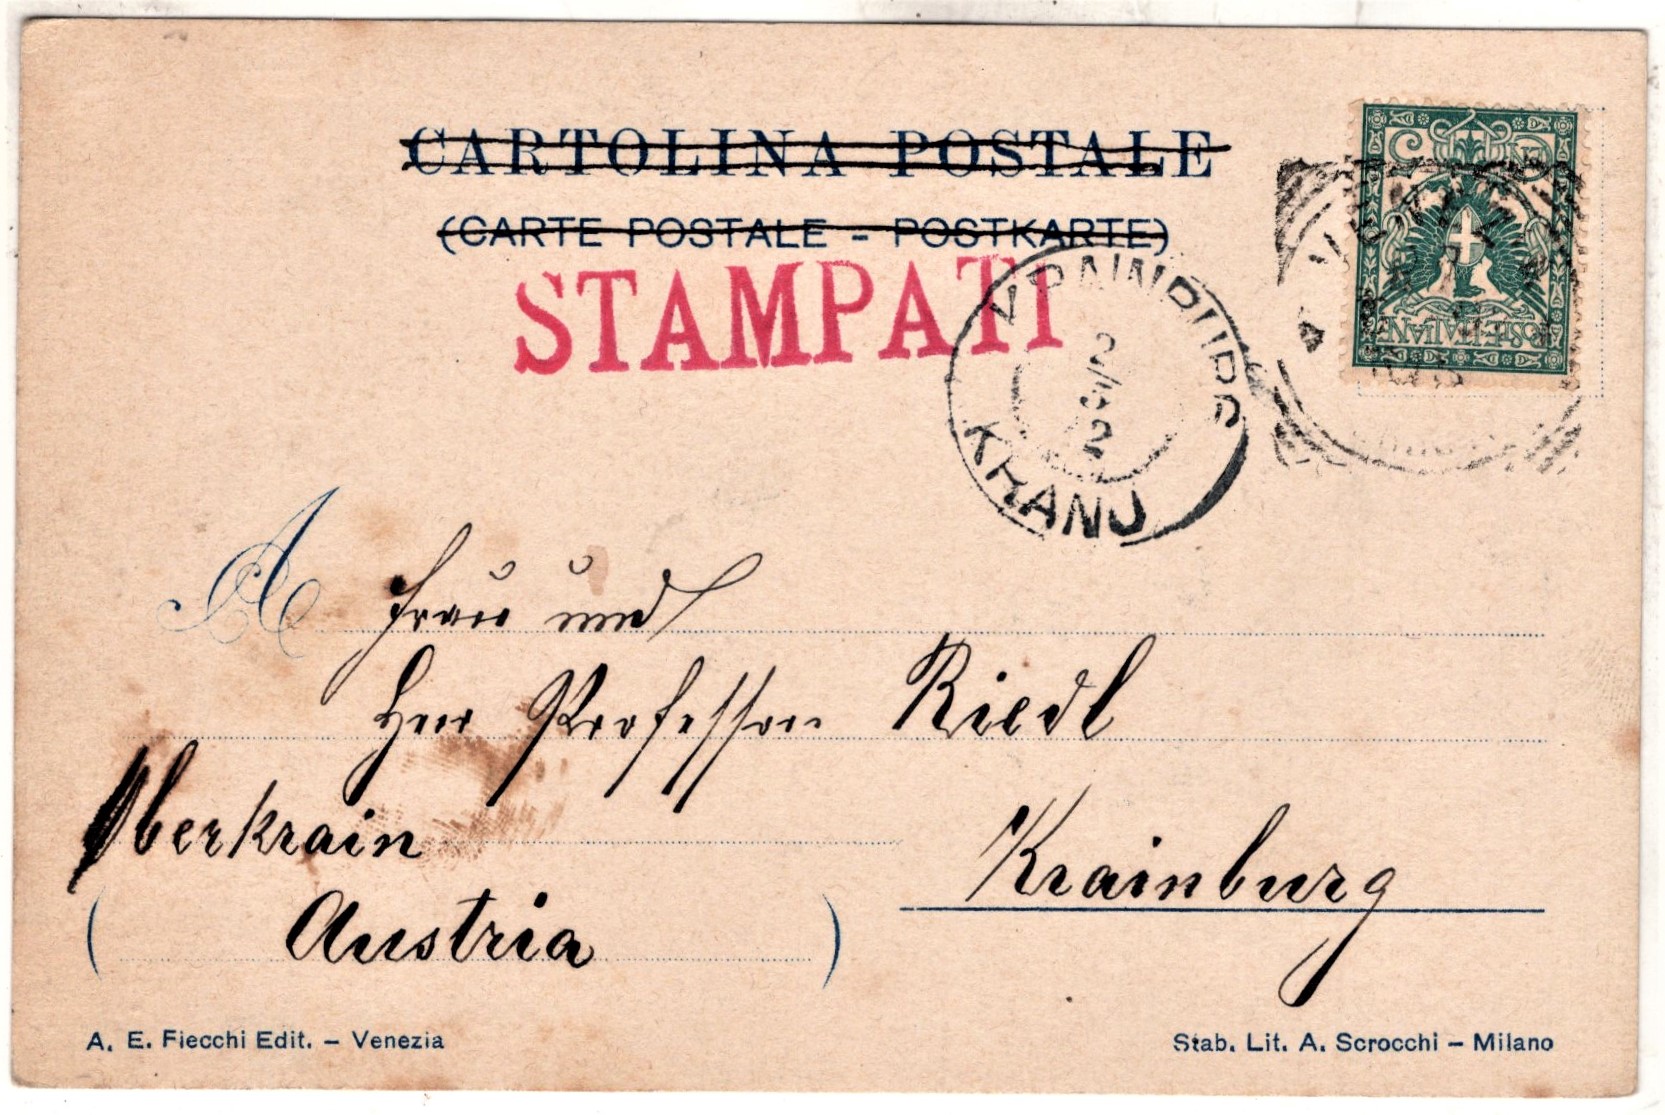 CARTOLINA POSTALE
(CARTE POSTALE - POSTKARTE)
STAMPATI
KRAINBURG
2/3
2
KRANJ
5
POSTE ITALIANE
A
Frau und
Herr Professor Riedl
Oberkrain
Krainburg
(Austria)
A. E. Fiecchi Edit. – Venezia
Stab. Lit. A. Scrocchi – Milano